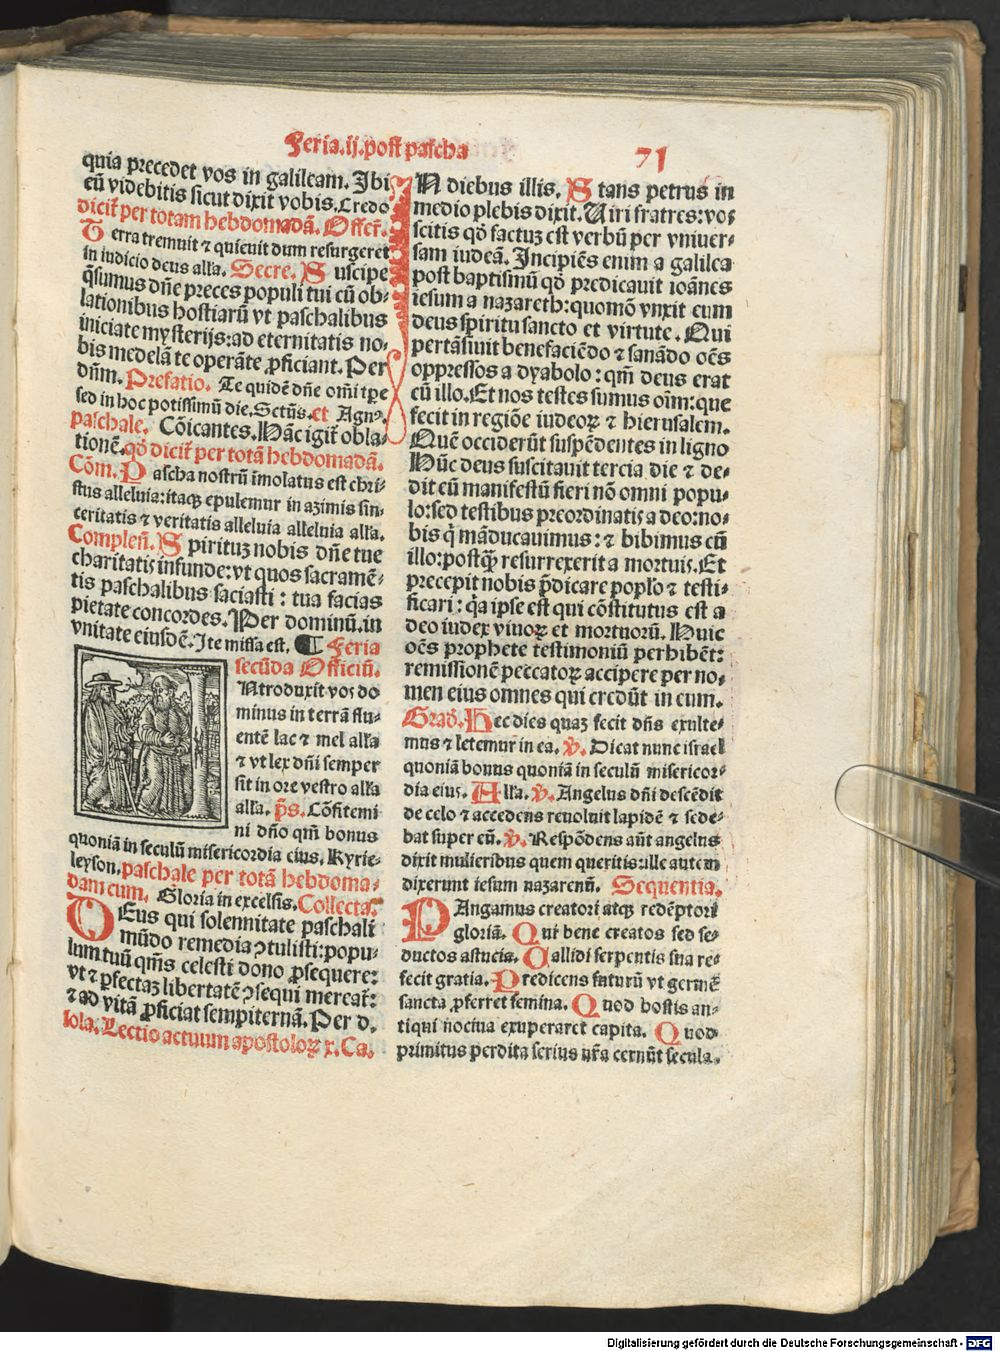 Feria.ij.post pascha
71
quia precedet vos in galileam. Ibi
eū videbitis sicut dixit vobis. Credo
dicit̄ per totam hebdomadā. Offert̄.
Terra tremuit ⁊ quieuit dum resurgeret
in iudicio deus alła. Secre. Suscipe
q̄sumus dn̄e preces populi tui cū ob⸗
lationibus hostiarū vt paschalibus
iniciate mysterijs: ad eternitatis no⸗
bis medelā te operāte ꝓficiant. Per
dn̄m. Prefatio. Te quidē dn̄e om̄i tꝑe
sed in hoc potissimū die. Sctūs. et Agnꝰ.
paschale. Cōicantes. Hāc igit̄ obla⸗
tionē. qđ dicit̄ per totā hebdomadā.
Cōm. Pascha nostrū īmolatus est chri⸗
stus alleluia: itaqꝫ epulemur in azimis sin⸗
ceritatis ⁊ veritatis alleluia alleluia alła.
Compleñ. Spirituꝫ nobis dn̄e tue
charitatis infunde: vt quos sacramē⸗
tis paschalibus saciasti: tua facias
pietate concordes. Per dominū. in
vnitate eiusdē. Ite missa est. ¶ Feria
secūda Officiū.
Ntroduxit vos do
minus in terrā flu⸗
entē lac ⁊ mel alła
⁊ vt lex dn̄i semper
sit in ore vestro alła
alła. p̄s. Cōfitemi
ni dn̄o qm̄ bonus
quoniā in seculū misericordia eius. Kyrie⸗
leyson. paschale per totā hebdoma⸗
dam cum. Gloria in excelsis. Collecta.
DEus qui solennitate paschali
mūdo remedia ꝯtulisti: popu⸗
lum tuū qm̄s celesti dono ꝓsequere:
vt ⁊ ꝑfectaꝫ libertatē ꝯsequi mereat̄:
⁊ ad vitā ꝓficiat sempiternā. Per d.
sola. Lectio actuum apostoloꝝ x. Ca.
IN diebus illis. Stans petrus in
medio plebis dixit. Uiri fratres: vos
scitis qđ factuꝫ est verbū per vniuer⸗
sam iudeā. Incipiēs enim a galilea
post baptismū qđ predicauit ioānes
iesum a nazareth: quomō vnxit eum
deus spiritu sancto et virtute. Qui
pertāsiuit benefaciēdo ⁊ sanādo oēs
oppressos a dyabolo: qm̄ deus erat
cū illo. Et nos testes sumus oīm: que
fecit in regiōe iudeoꝝ ⁊ hierusalem.
Quē occiderūt suspēdentes in ligno
Hūc deus suscitauit tercia die ⁊ de⸗
dit eū manifestū fieri nō omni popu⸗
lo: sed testibus preordinatis a deo: no⸗
bis q̇ māducauimus: ⁊ bibimus cū
illo: postq̄ȝ resurrexerit a mortuis. Et
precepit nobis p̄dicare popło ⁊ testi⸗
ficari: q̇a ipse est qui cōstitutus est a
deo iudex viuoꝝ et mortuorū. Huic
oēs prophete testimoniū perhibēt:
remissionē peccatoꝝ accipere per no⸗
men eius omnes qui credūt in eum.
Građ. Hec dies quaꝫ fecit dn̄s exulte⸗
mus ⁊ letemur in ea. ℣. Dicat nunc israel
quoniā bonus quoniā in seculū misericor⸗
dia eius. Alła. ℣. Angelus dn̄i descēdit
de celo ⁊ accedens reuoluit lapidē ⁊ sede⸗
bat super eū. ℣. Respōdens aūt angelus
dixit mulieribus quem queritis: ille autem
dixerunt iesum nazarenū. Sequentia.
PAngamus creatori atqꝫ redēptori
gloriā. Qui bene creatos sed se⸗
ductos astucia. Callidi serpentis sua re⸗
fecit gratia. Predicens futurū vt germē
sancta ꝓferret femina. Quod hostis an⸗
tiqui nociua exuperaret capita. Quod
primitus perdita serius nr̄a cernūt secula.
Digitalisierung gefördert durch die Deutsche Forschungsgemeinschaft - DFG